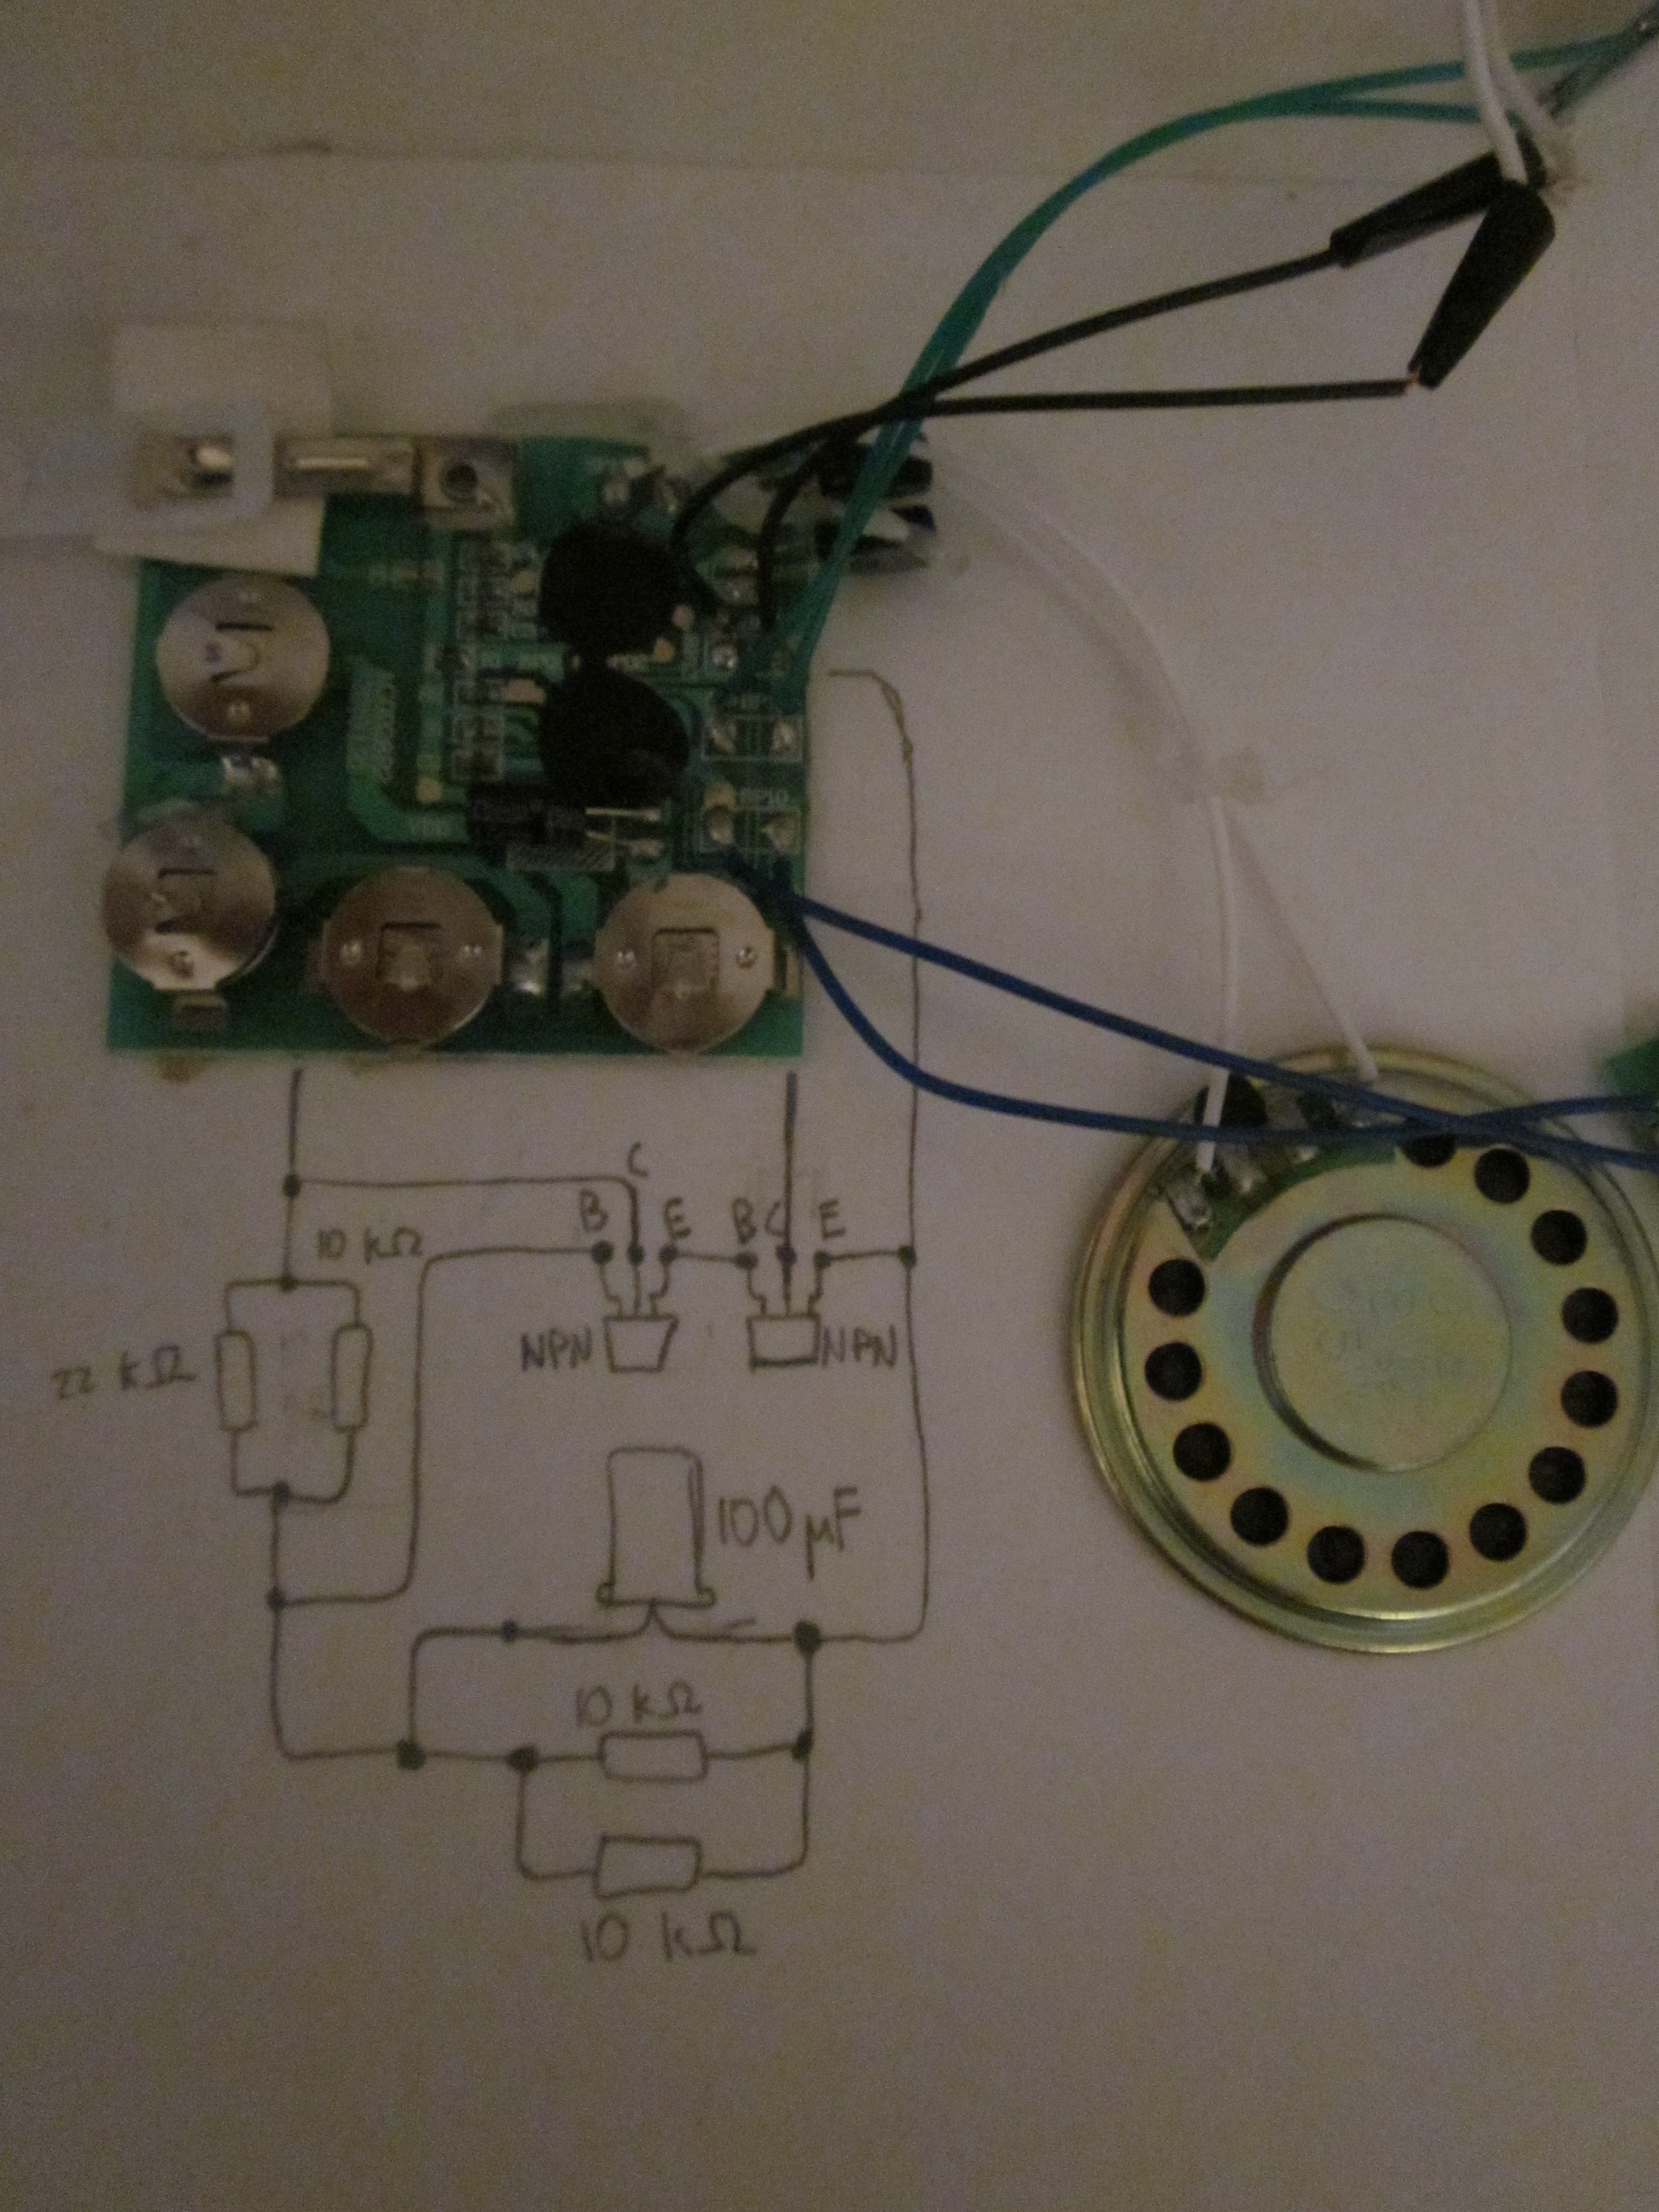 C
B
E
B
C
E
10 kΩ
22 kΩ
NPN
NPN
100 µF
10 kΩ
10 kΩ